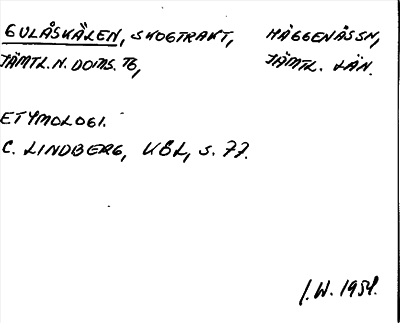 GULÅSKÄLEN, SKOGTRAKT, HÄGGENÅS SN,
JÄMTL. N. DOMS. TB, JÄMTL. LÄN.
ETYMOLOGI.
C. LINDBERG, KBL, s. 77.
I. W. 1954.